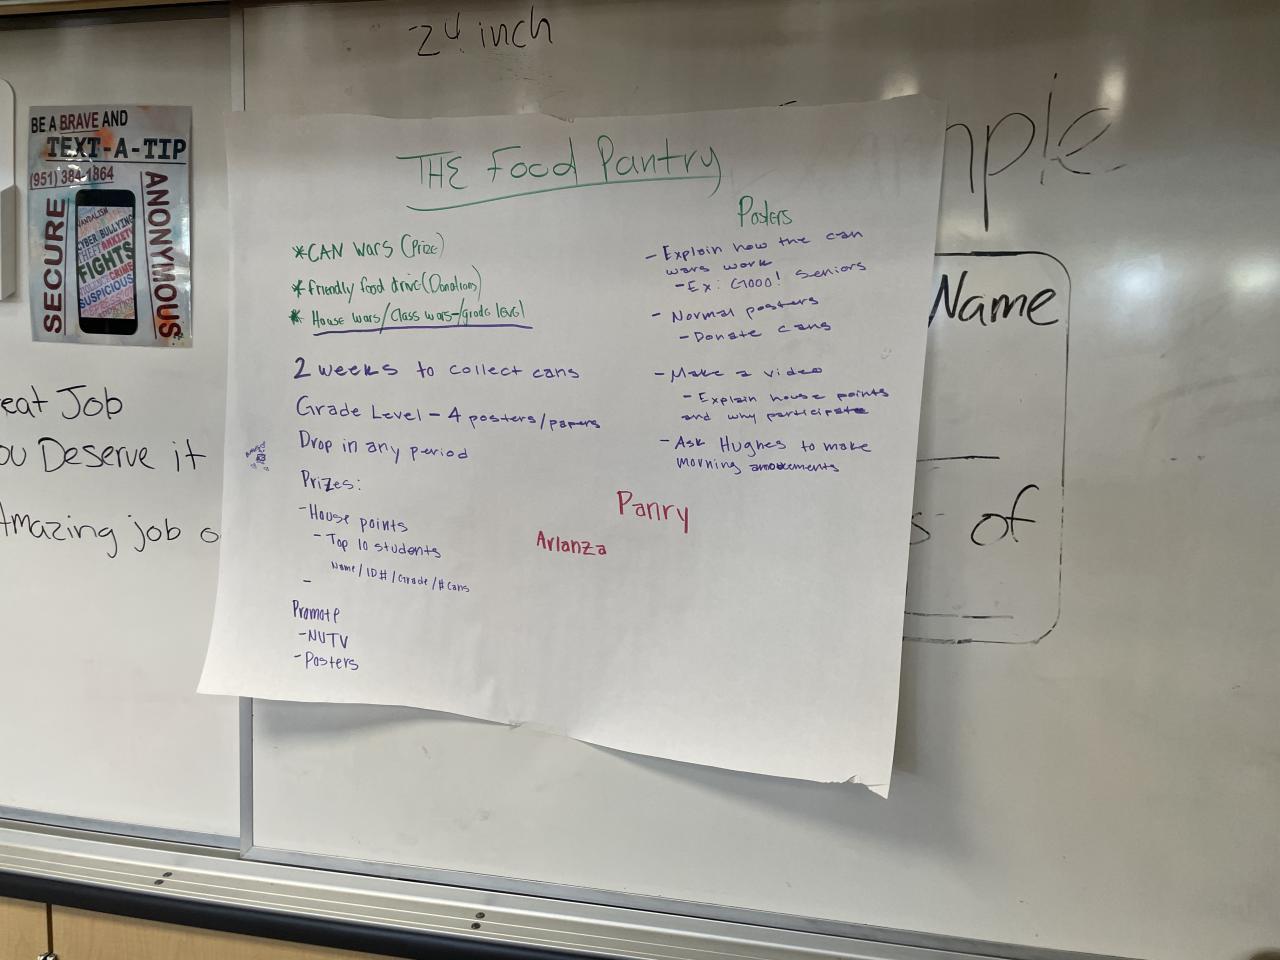 24 inch
BE A BRAVE AND
TEXT-A-TIP
(951) 384-1864
SECURE
ANONYMOUS
VANDALISM
CYBER BULLYING
THEFT ANXIETY
FIGHTS
CRIME
SUSPICIOUS
eat Job
ou Deserve it
Amazing job o
THE Food Pantry
*CAN Wars (Prize)
*friendly food drive (Donations)
* House wars/Class wars-/grade level
2 weeks to collect cans
Grade Level - 4 posters/papers
Drop in any period
Prizes:
-House points
-Top 10 students
Name/ID#/Grade/#Cans
-
Promote
-NVTV
-Posters
Posters
- Explain how the can
wars work
- Ex: Gooo! Seniors
- Normal posters
- Donate cans
- Make a video
- Explain house points
and why participate
- Ask Hughes to make
morning
Panry
Arlanza
mple
Name
s of